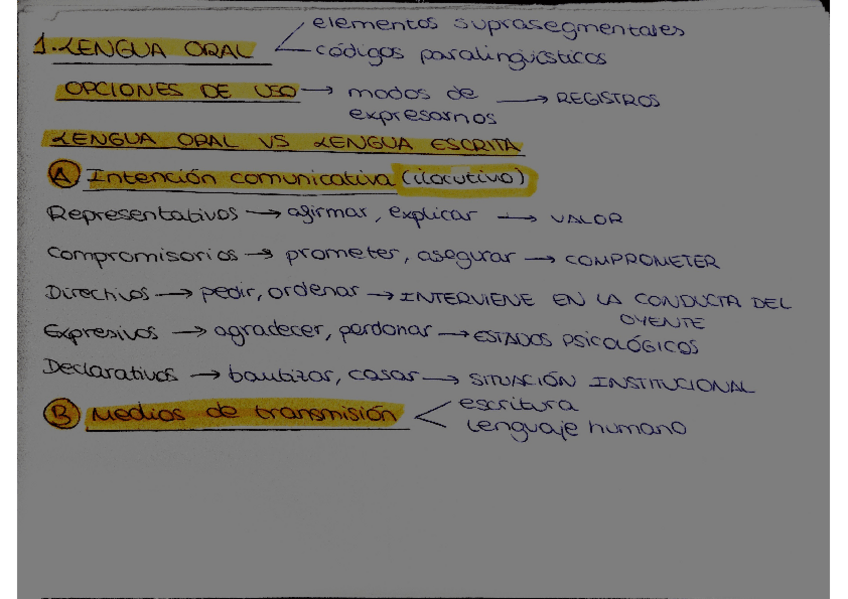 elementos suprasegmentales
1. LENGUA ORAL
códigos paralingüísticos
OPCIONES DE USO → modos de expresarnos → REGISTROS
LENGUA ORAL VS LENGUA ESCRITA
A Intención comunicativa (ilocutivo)
Representativos → afirmar, explicar → VALOR
Compromisorios → prometer, asegurar → COMPROMETER
Directivos → pedir, ordenar → INTERVIENE EN LA CONDUCTA DEL OYENTE
Expresivos → agradecer, perdonar → ESTADOS PSICOLÓGICOS
Declarativos → bautizar, casar → SITUACIÓN INSTITUCIONAL
B Medios de transmisión
escritura
lenguaje humano